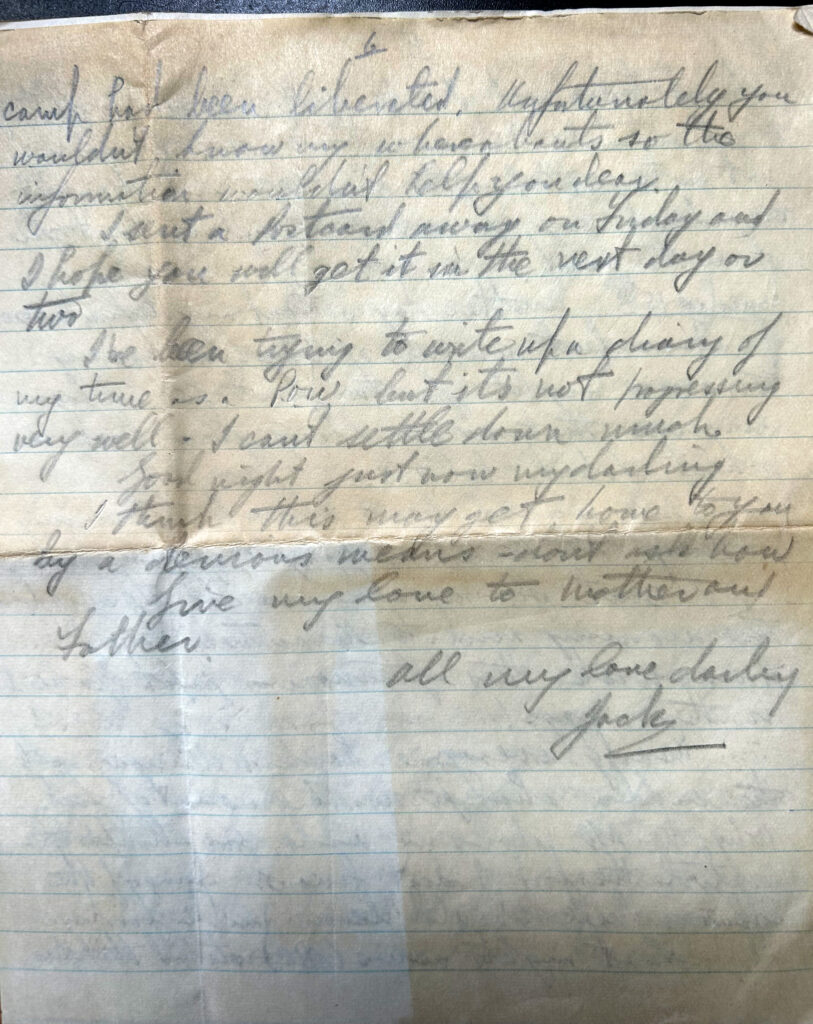 6
camp had been liberated. Unfortunately you
wouldn't know my whereabouts so the
information wouldn't help you dear.
I sent a Postcard away on Friday and
I hope you will get it in the next day or
two
I've been trying to write up a diary of
my time as a Pow but it's not progressing
very well - I cant settle down much.
Good night just now my darling
I think this may get home to you
by a devious means - don't ask how
Give my love to Mother and
Father.
All my love darling
Jack